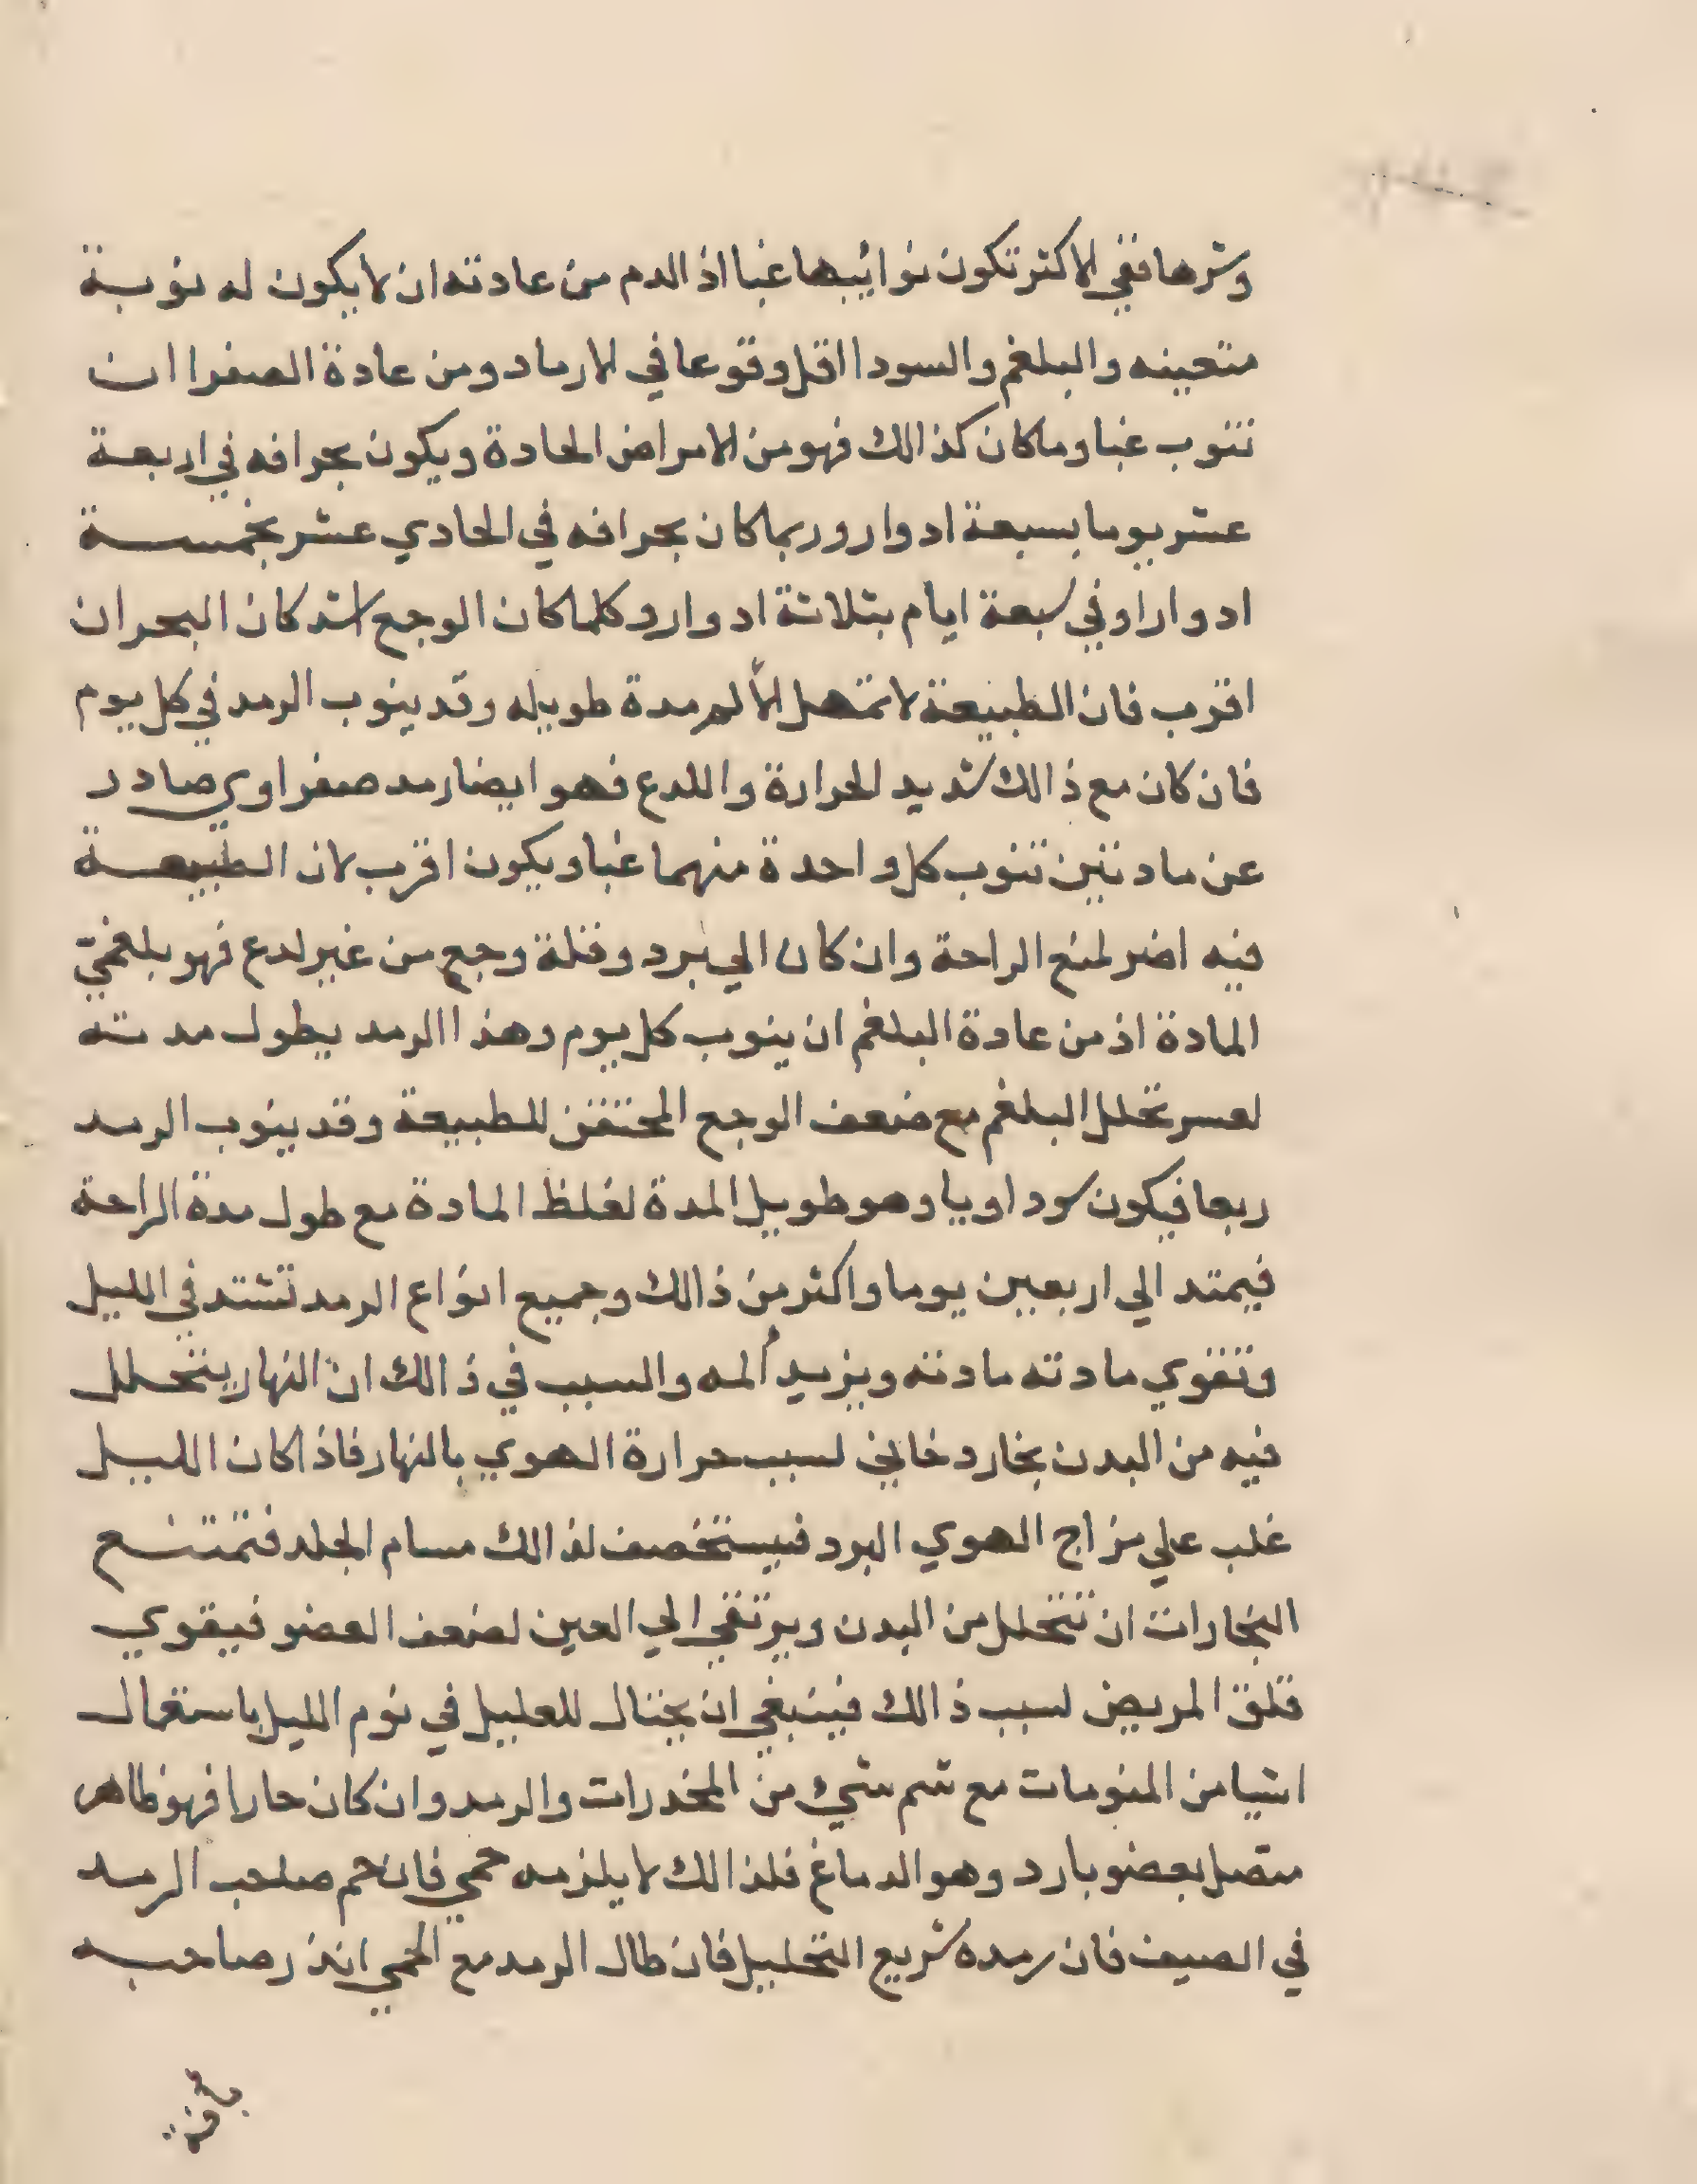 وشرها ففي الاكثر تكون نوائيبها غبا اذ الدم من عادته ان لا يكون له نوبة
متعينه والبلغم والسودا اقل وقوعا في الارماد ومن عادة الصفرا ان
تنوب غبا وما كان كذالك فهو من الامراض الحادة ويكون بحرافه في اربعة
عشر يوما بسبعة ادوار وربما كان بحرافه في الحادي عشر بخمسة
ادوار او في سبعة ايام بثلاثة ادوار وكلما كان الوجع اشد كان البحران
اقرب فان الطبيعة لا تمهل الألم مدة طويله وقد ينوب الرمد في كل يوم
فان كان مع ذالك شديد الحرارة واللدع فهو ايضا رمد صفراوي صادر
عن مادتين تنوب كل واحدة منهما غبا ويكون اقرب لان الطبيعة
فيه اضر لمنع الراحة وان كان الي برد وقلة وجع من غير لدع فهو بلغمي
المادة اذ من عادة البلغم ان ينوب كل يوم وهذا الرمد يطول مدته
لعسر تحلل البلغم مع ضعف الوجع المحتقن للطبيعة وقد ينوب الرمد
ربعا فيكون سوداويا وهو طويل المدة لغلظ المادة مع طول مدة الراحة
فيمتد الي اربعين يوما واكثر من ذالك وجميع انواع الرمد تشتد في الليل
وتقوي مادته مادته ويزيد ألمه والسبب في ذالك ان النهار يتحلل
فيه من البدن بخار دخاني لسبب حرارة الهوي بالنهار فاذا كان الليل
غلب علي مزاج الهوي البرد فيستخصف لذالك مسام الجلد فتمتنع
البخارات ان تتحلل من البدن ويرتقي الي العين لضعف العضو فيقوي
قلق المريض لسبب ذالك فينبغي ان يحتال للعليل في نوم الليل باستعمال
اشيا من المنومات مع شم شيء من المخدرات والرمد وان كان حارا فهو ظاهر
متصل بعضو بارد وهو الدماغ فلذالك لا يلزمه حمي فان حم صاحب الرمد
في الصيف فان رمده سريع التحليل فان طال الرمد مع الحمي انذر صاحبه